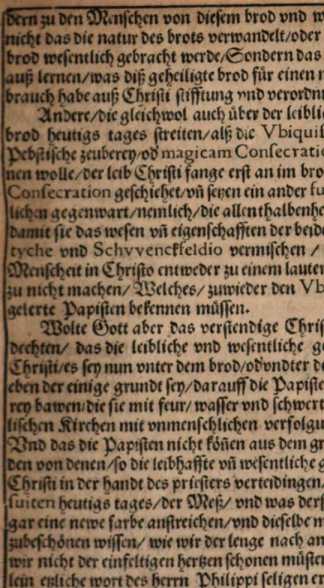 dern zu den Menschen von diesem brod vnd w
nicht das die natur des brots verwandelt/oder
brod wesentlich gebracht werde/Sondern das
auß lernen/was diß geheiligte brod für einen n
brauch habe auß Christi stifftung vnd verordnu
Andere/die gleichwol auch über der leibli
brod heutigs tages streiten/alß die Vbiquit
Pebstische zeuberey/oď magicam Consecratio
nen wolle/der leib Christi fange erst an im bro
Consecration geschiehet/vñ setzen ein ander fu
lichen gegenwart/nemlich/die allenthalbenhe
damit sie das wesen vñ eigenschafften der beide
tyche vnd Schvvenckfeldio vermischen /
Menscheit in Christo entweder zu einem lauter
zu nicht machen/ Welches/ zuwieder den Vb
gelerte Papisten bekennen müssen.
Wolte Gott aber das verstendige Chris
dechten/ das die leibliche vnd wesentliche ge
Christi/es sey nun vnter dem brod/oď vndter d
eben der einige grundt sey/darauff die Papiste
rey bawen/die sie mit feur/wasser vnd schwert
lischen Kirchen mit vnmenschlichen verfolgu
Vnd das die Papisten nicht köñen aus dem gr
den von denen/so die leibhaffte vñ wesentliche g
Christi in der handt des priesters verteidingen/
suiten heutigs tages/der Meß/ vnd was ders
gar eine newe farbe anstreichen/vnd dieselbe m
zubeschönen wissen/ wie wir der lenge nach an
wir nicht der einfeltigen hertzen schonen müste
lein etzliche wort des herrn Philippi seligen er